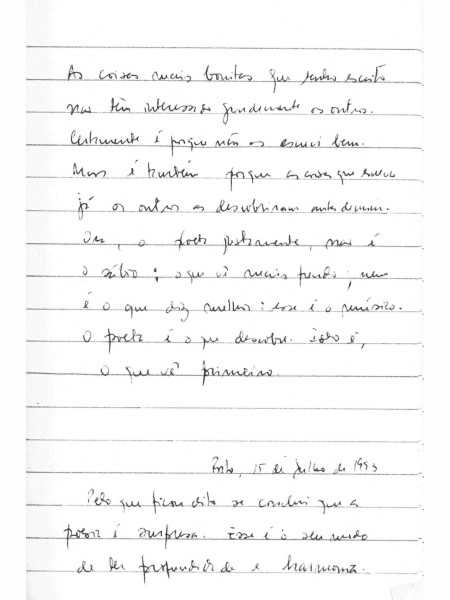 As coisas mais bonitas que tenho escrito
não têm interessado grandemente os outros.
Certamente é porque não as escrevi bem.
Mas é também porque as coisas que escrevo
já os outros as descobriram antes de mim.
Ora, o poeta justamente, não é
o sábio: o que vê mais fundo; nem
é o que diz melhor: esse é o músico.
O poeta é o que descobre. Isto é,
o que vê primeiro.
Porto, 15 de Julho de 1953
Pelo que ficou dito se conclui que a
poesia é surpresa. Esse é o seu modo
de ser profundidade e harmonia.